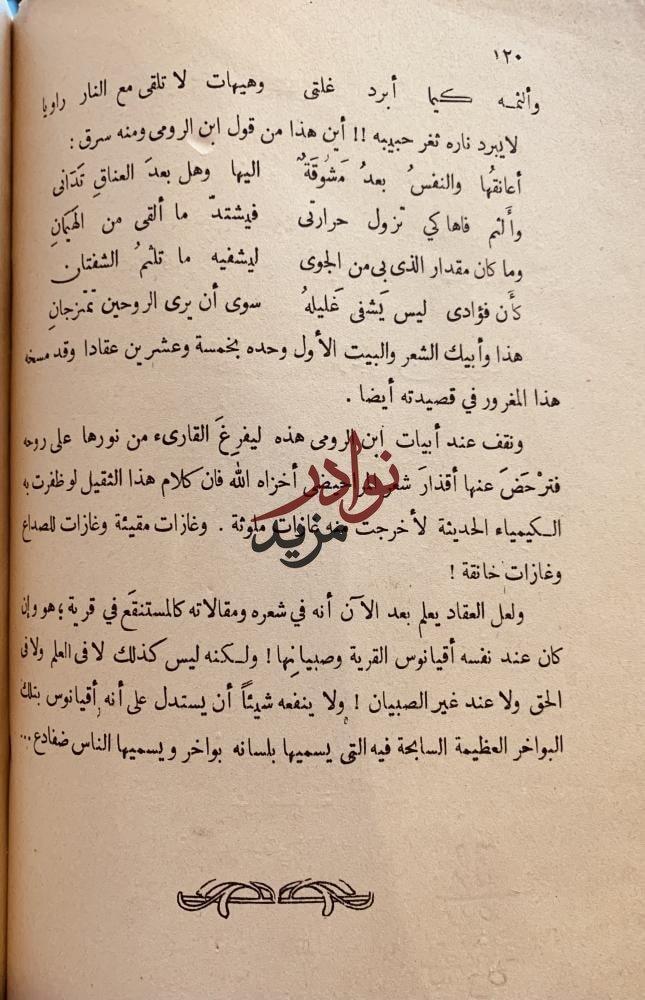 ١٢٠
وألثمه كيما أبرد غلتى وهيهات لا تلقى مع النار راويا
لايبرد ناره ثغر حبيبه !! أين هذا من قول ابن الرومى ومنه سرق :
أعانقُها والنفسُ بعدُ مَشُوقَةٌ اليها وهل بعدَ العناقِ تَدَانى
وأَلثم فاها كي تزول حرارتى فيشتدّ ما ألقى من الهَيَمانِ
وما كان مقدار الذى بى من الجوى ليشفيه ما تلثمُ الشفتان
كأَن فؤادى ليس يَشفى غَليلهُ سوى أن يرى الروحين تمتزجانِ
هذا وأبيك الشعر والبيت الأول وحده بخمسة وعشرين عقادا وقد مسخه
هذا المغرور في قصيدته أيضا .
ونقف عند أبيات ابن الرومى هذه ليفرِغَ القارىء من نورها على روحه
فترْحَضَ عنها أقذارَ شعر المراحيضى أخزاه الله فان كلام هذا الثقيل لو ظفرت به
الكيمياء الحديثة لأخرجت منه غازات ملوثة . وغازات مقيئة وغازات للصداع
وغازات خانقة !
ولعل العقاد يعلم بعد الآن أنه في شعره ومقالاته كالمستنقَع في قرية ؛ هو وإن
كان عند نفسه أقيانوس القرية وصبيانها ! ولكنه ليس كذلك لا فى العلم ولا فى
الحق ولا عند غير الصبيان ! ولا ينفعه شيئاً أن يستدل على أنه أقيانوس بتلك
البواخر العظيمة السابحة فيه التى يسميها بلسانه بواخر ويسميها الناس ضفادع ...
نوادر
مزيد